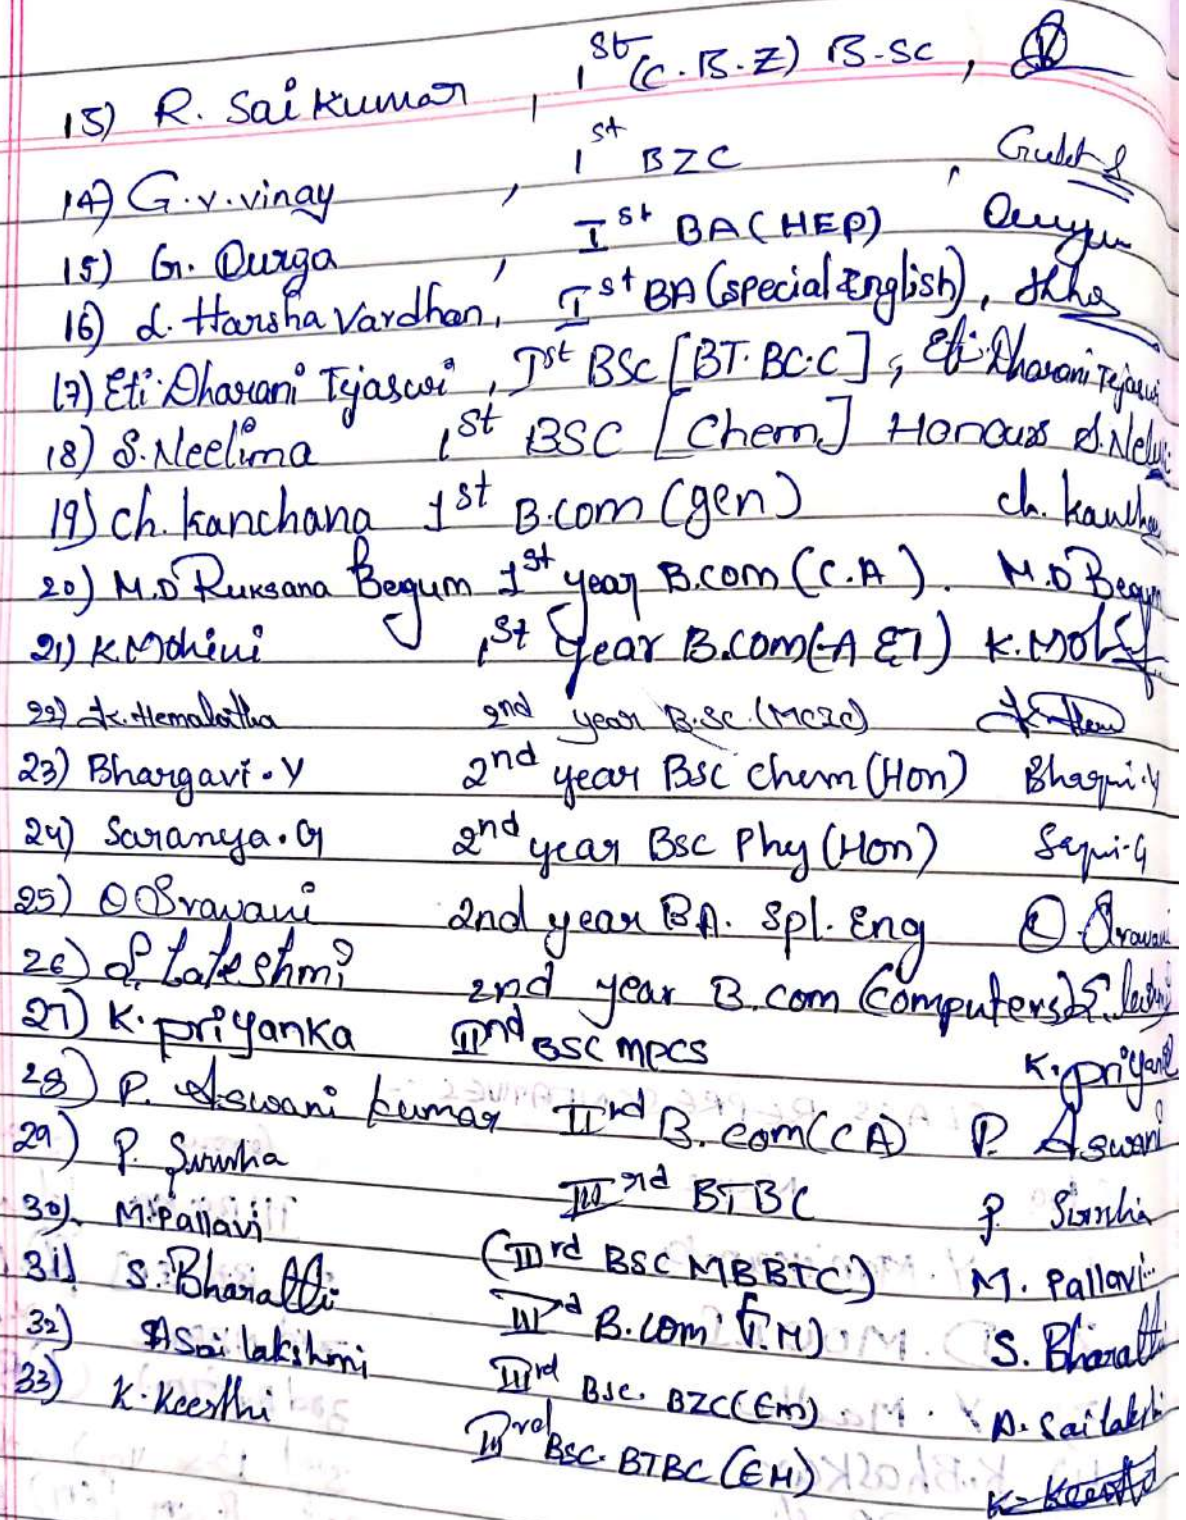 13) R. Sai Kumar , 1st (C.B.Z) B-SC ,
14) G.V.Vinay , 1st BZC ,
15) G. Durga , Ist BA (HEP)
16) L. Harsha Vardhan, Ist BA (special English),
17) Eti. Dharani Tejaswi , Ist BSC [BT.BC.C] , Eti. Dharani Tejaswi
18) S. Neelima 1st BSC [Chem] Honours S. Nel
19) Ch. Kanchana 1st B.Com (gen) ch. kanch
20) M.D Ruksana Begum 1st year B.com (C.A). M.D Begum
21) K.Mohini 1st year B.COM(A ET) K.Moh
22) K. Hemalatha 2nd year B.Sc. (MCZC)
23) Bhargavi.Y 2nd year BSC Chem (Hon) Bhargavi.Y
24) Saranya.G 2nd year BSC Phy (Hon)
25) O Sravani 2nd year BA. Spl. Eng O. Sravani
26) S. Lakshmi 2nd year B.com (Computers) S.
27) K. priyanka IInd BSC MPCS K. priyan
28) P. Aswani kumar IIrd B.com(CA) P. Aswani
29) P. Sirisha IIIrd BTBC P. Sirisha
30). M.Pallavi (IIIrd BSC MBBTC) M. Pallavi
31) S. Bharathi IIIrd B.com (F.M) S. Bharath
32) A Sai lakshmi IIIrd BSC. BZC(EM) A. Sai laksh
33) K. Keerthi IIIrd BSC. BTBC (EM) K. Keerthi